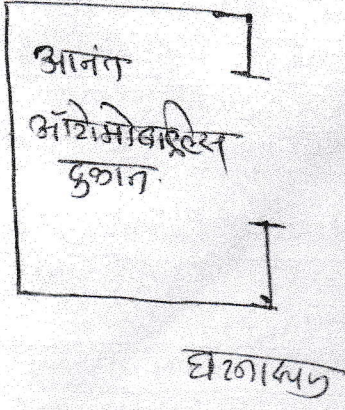 आनंत
ऑटोमोबाईल्स
दुकान.
घटनास्थळ